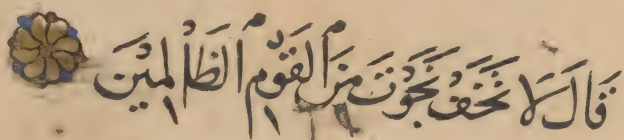 قَالَ لَا تَخَفْ نَجَوْتَ مِنَ الْقَوْمِ الظَّالِمِينَ